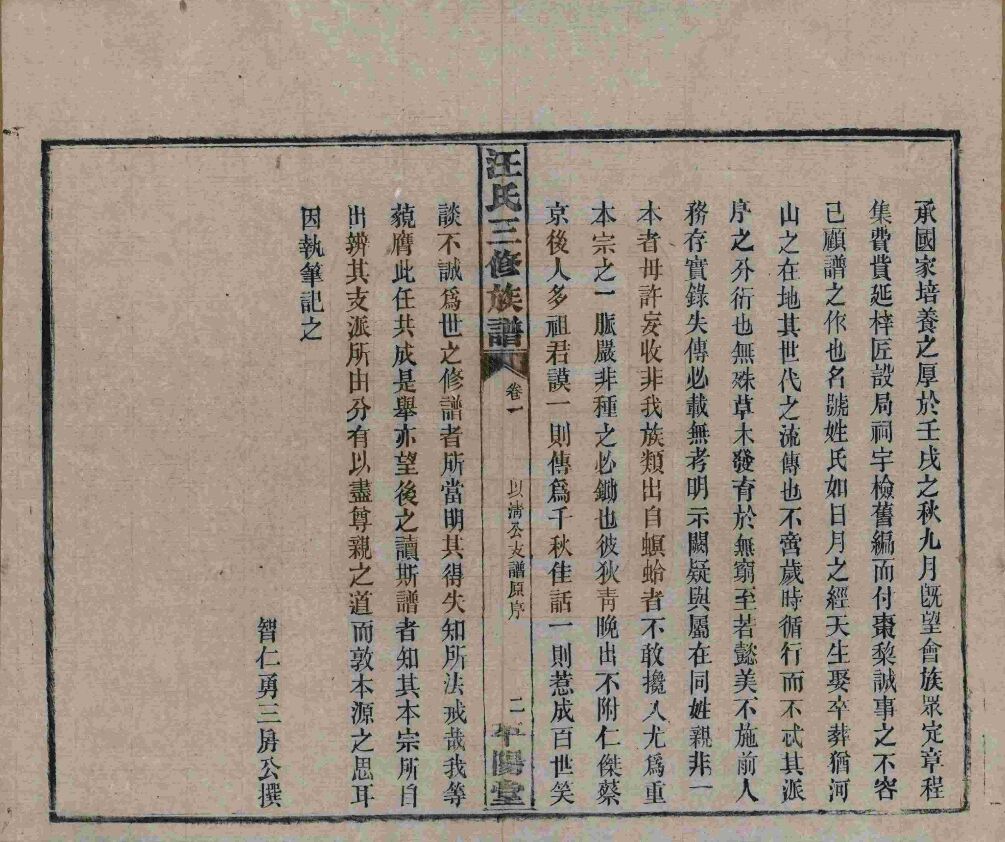 承國家培養之厚於壬戌之秋九月旣望會族眾定章程
集費貲延梓匠設局祠宇檢舊編而付棗棃誠事之不容
己顧譜之作也名號姓氏如日月之經天生娶卒葬猶河
山之在地其世代之流傳也不啻歲時循行而不忒其派
序之分衍也無殊草木發育於無窮至若懿美不施前人
務存實錄失傳必載無考明示闕疑與屬在同姓親非一
本者毋許妄收非我族類出自螟蛉者不敢攙入尤爲重
本宗之一脈嚴非種之必鋤也彼狄青晚出不附仁傑蔡
京後人多祖君謨一則傳爲千秋佳話一則惹成百世笑
汪氏三修族譜
卷一
以清公支譜原序
二
平陽堂
談不誠爲世之修譜者所當明其得失知所法戒哉我等
藐膺此任共成是舉亦望後之讀斯譜者知其本宗所自
出辨其支派所由分有以盡尊親之道而敦本源之思耳
因執筆記之
智仁勇三房公撰